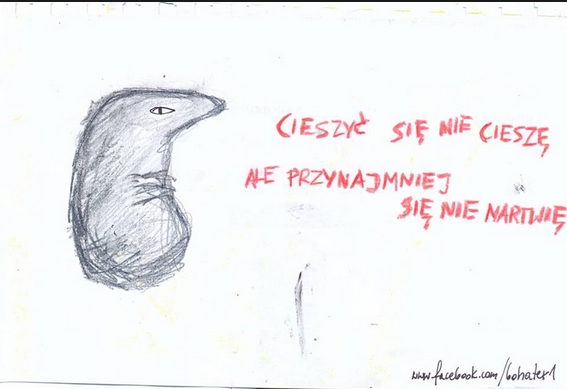 CIESZYĆ SIĘ NIE CIESZĘ
ALE PRZYNAJMNIEJ
SIĘ NIE MARTWIĘ
www.facebook.com/bohater1